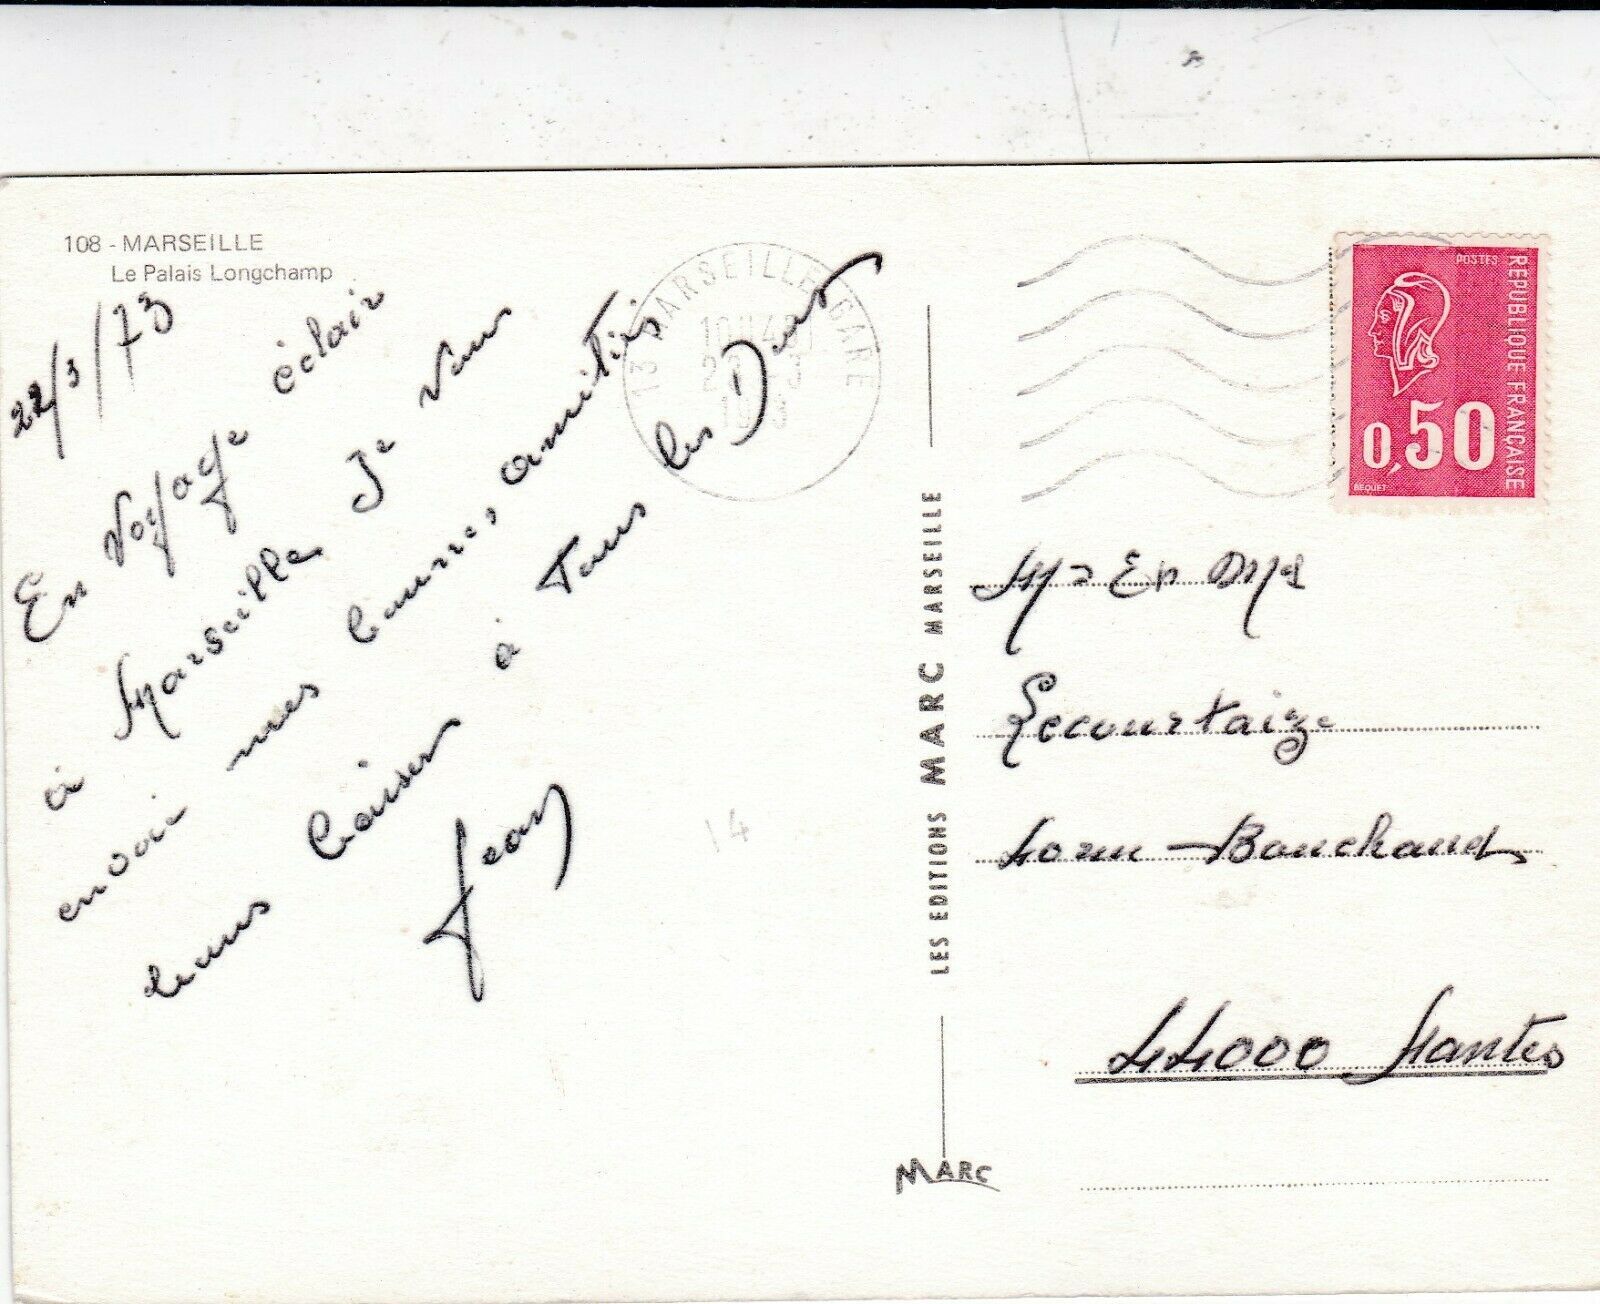 108 - MARSEILLE
Le Palais Longchamp
22/3/73
En Voyage éclair
à Marseille Je Vous
envoie mes bonnes amitiés
bons baiser à Tous les Deux
Jean
13 MARSEILLE GARE
POSTES
REPUBLIQUE FRANÇAISE
0,50
BEQUET
LES EDITIONS MARC MARSEILLE
Mr Et Mme
Lecourtaize
Bouchaud
44000 Nantes
MARC
14